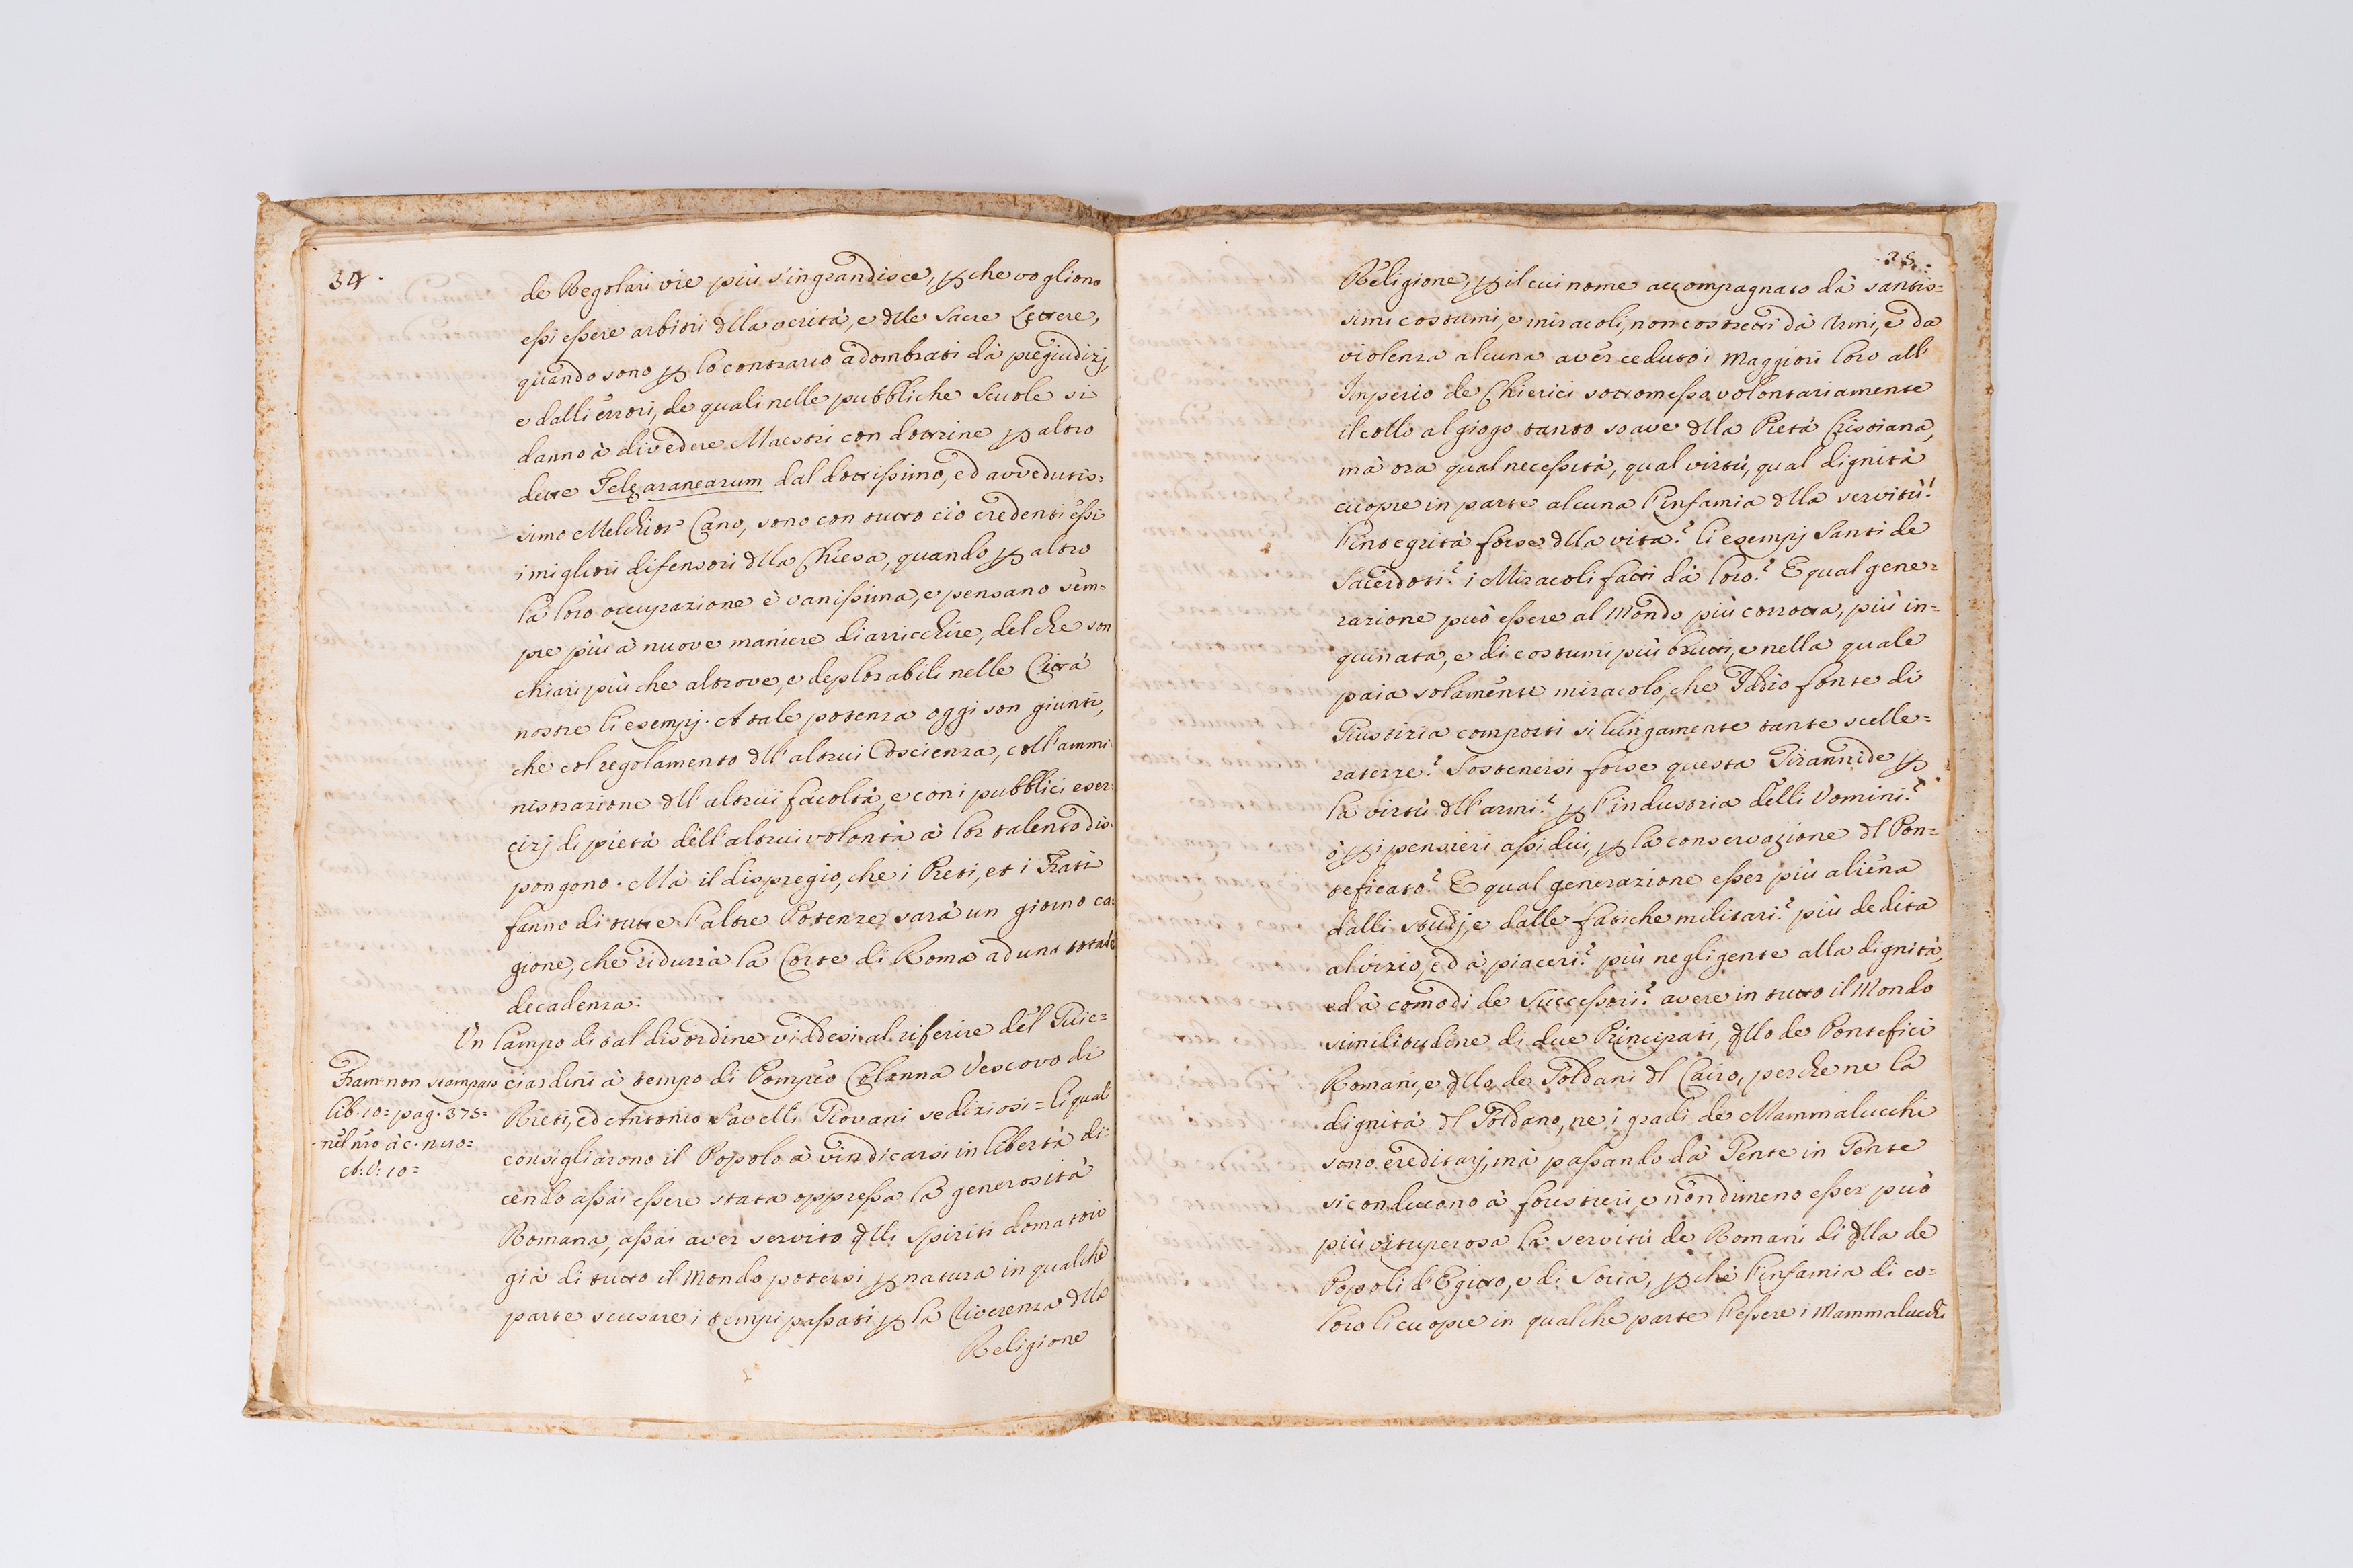 34.
de Regolari vie più s'ingrandisce, p che vogliono
essi essere arbitri dlla verità, e dlle Sacre Lettere,
quando sono p lo contrario adombrati dà pregiudizj,
e dalli errori, de quali nelle pubbliche Scuole si
danno à divedere Maestri con dottrine p altro
dette Telę aranearum dal dottissimo, ed avvedutis=
simo Melchior Cano, sono con tutto ciò credenti essi
i migliori difensori dlla Chiesa, quando p altro
la loro occupazione è vanissima, e pensano sem=
pre più à nuove maniere di arricchire, del che son
chiari più che altrove, e deplorabili nelle Città
nostre li esempj. A tale potenza oggi son giunti,
che col regolamento dll'altrui Coscienza, coll'ammi
nistrazione dll'altrui facoltà, e con i pubblici eser=
cizj di pietà dell'altrui volontà à lor talento dis=
pongono. Mà il dispregio, che i Preti, et i Frati
fanno di tutte l'altre Potenze sarà un giorno ca=
gione, che ridurrà la Corte di Roma ad una totale
decadenza:
Un lampo di tal disordine viddesi al riferire del Guic=
ciardini à tempo di Pompeo Colonna Vescovo di
Rieti, ed Antonio Savelli Giovani sediziosi = li quali
consigliarono il Popolo à vindicarsi in libertà di=
cendo assai essere stata oppressa la generosità
Romana, assai aver servito qlli spiriti domatori
già di tutto il Mondo potersi p natura in qualche
parte scusare i tempi passati p la Riverenza dlla
Religione
Fram: non stampato
lib. 10 = pag. 375 =
nel nro à c. nro =
A: V: 10 =
35.
Religione, p il cui nome accompagnato dà santis=
simi costumi, e miracoli, non costretti dà Armi, e da
violenza alcuna aver ceduto i Maggiori loro all'
Imperio de Chierici sottomesso volontariamente
il collo al giogo tanto soave dlla Pietà Cristiana,
mà ora qual necessità, qual virtù, qual dignità
cuopre in parte alcuna l'infamia dlla servitù?
l'integrità forse dlla vita? li esempj Santi de
Sacerdoti? i Miracoli fatti dà loro? E qual gene=
razione può essere al Mondo più corrotta, più in=
quinata, e di costumi più brutti, e nella quale
paia solamente miracolo, che Iddio fonte di
Giustizia comporti si lungamente tante scelle=
ratezze? Sostenersi forse questa Tirannide p
la virtù dll'armi? p l'industria delli Uomini?
ò p i pensieri assidui, p la conservazione dl Pon=
teficato? E qual generazione esser più aliena
dalli studj, e dalle fatiche militari? più dedita
al vizio, ed à piaceri? più negligente alla dignità,
ed à comodi de Successori? avere in tutto il Mondo
similitudine di due Principati, qllo de Pontefici
Romani, e qllo de Soldani dl Cairo, perche ne la
dignità dl Soldano, ne i gradi de Mammalucchi
sono ereditarj, mà passando dà Gente in Gente
si conducono à forestieri, e nondimeno esser può
più vituperosa la servitù de Romani di qlla de
Popoli d'Egitto, e di Soria, p chè l'infamia di co=
loro li cuopre in qualche parte l'essere i Mammalucchi